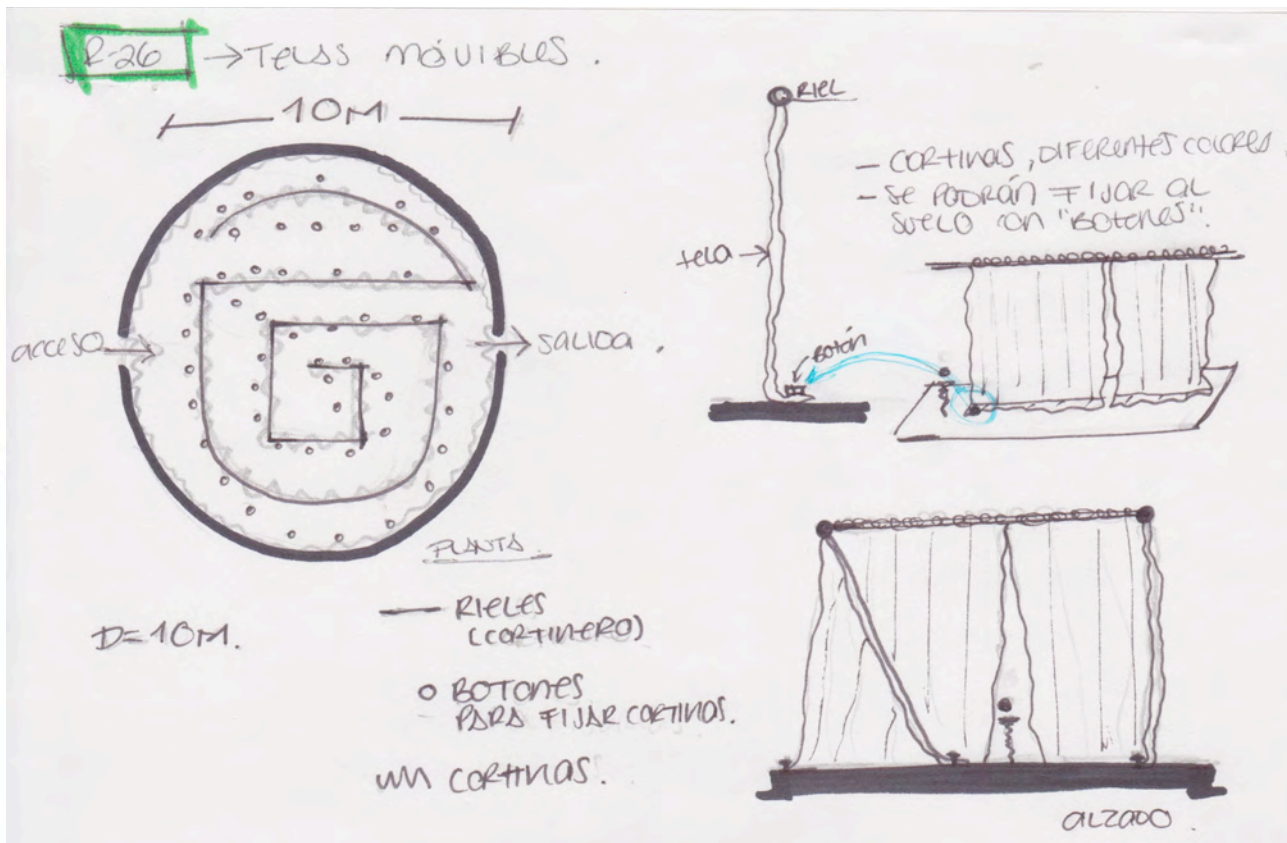 R-26 → TELAS MÓVIBLES.
10M
acceso
SALIDA.
PLANTA.
D=10M.
RIELES
(CORTINERO)
BOTONES
PARA FIJAR CORTINAS.
CORTINAS.
RIEL
- CORTINAS, DIFERENTES COLORES.
- SE PODRÁN FIJAR AL
SUELO CON "BOTONES".
tela
BOTÓN
ALZADO.